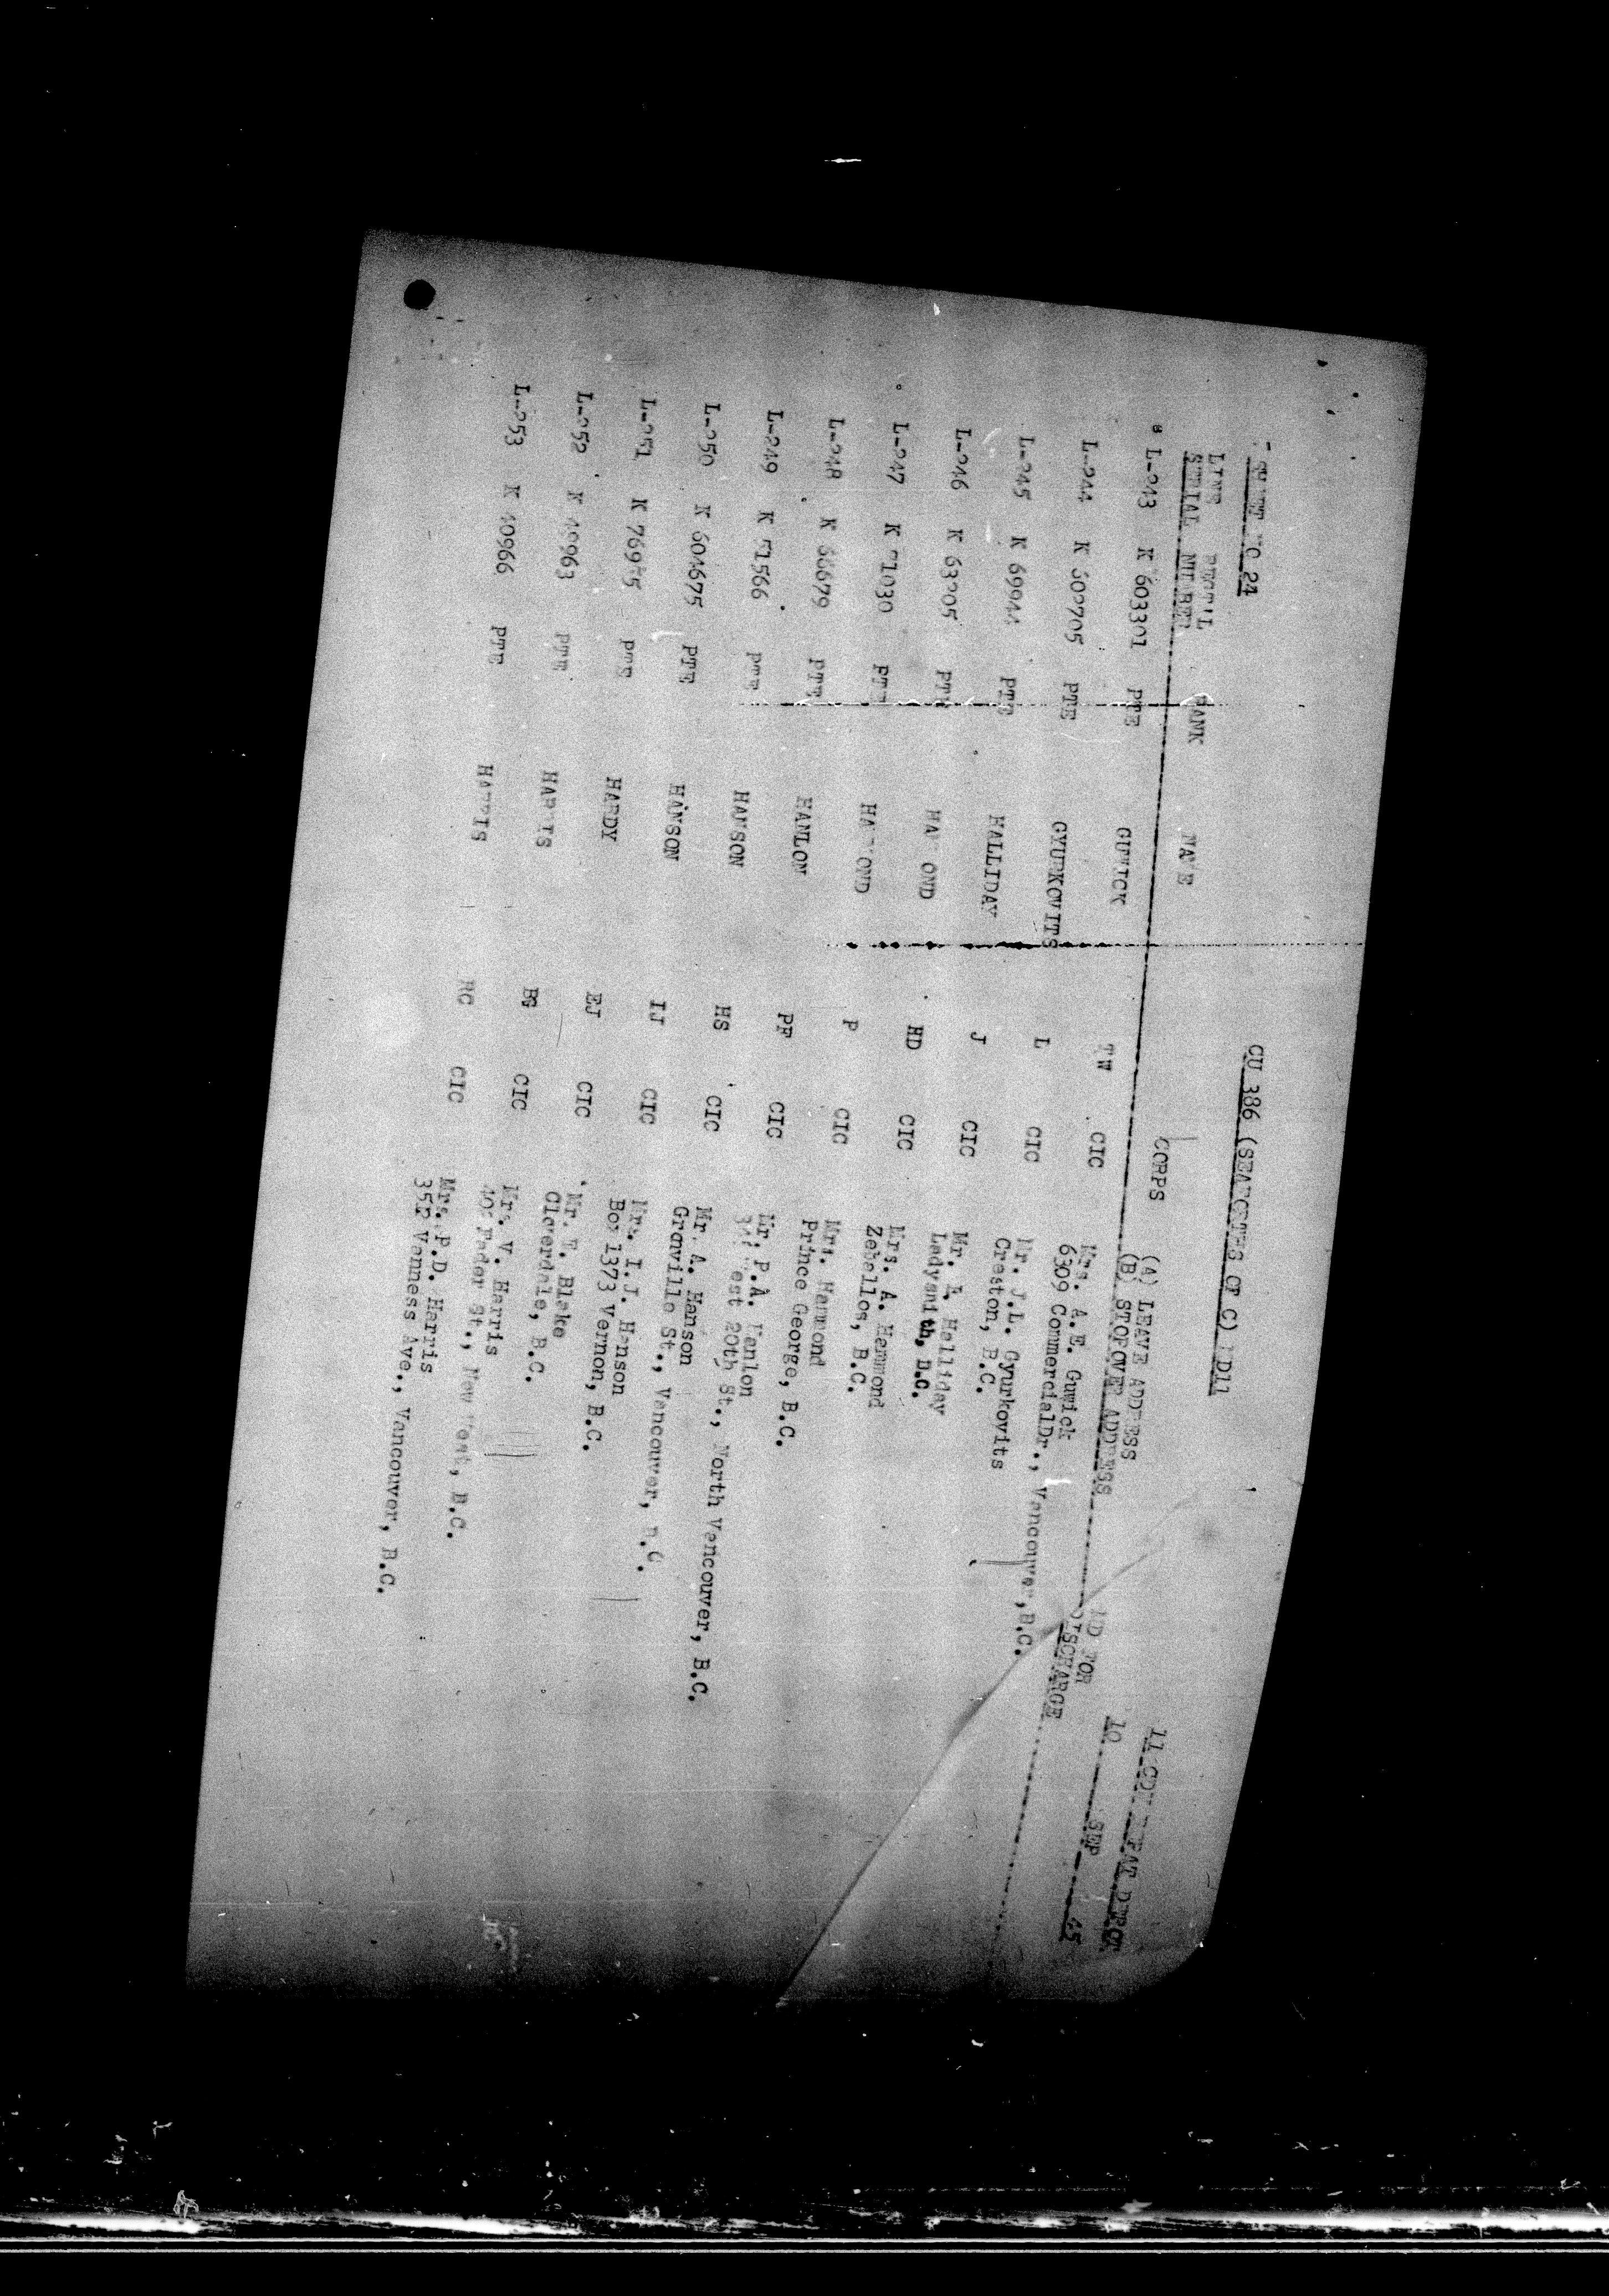 24
CU 386 (SEAFORTHS OF C) MD11
10 SEP 45
SERIAL RANK NAME CORPS (A) LEAVE ADDRESS
(B) STOPOVER ADDRESS
FOR
DISCHARGE
L-243 K 603301 PTE GUWICK TW CIC Mrs. A.E. Guwick
6309 CommercialDr., Vancouver, B.C.
L-244 PTE GYURKOVITS L CIC Mr. J.L. Gyurkovits
Creston, B.C.
L-245 K 69944 PTE HALLIDAY J CIC Mr. Halliday
Ladysmith, B.C.
L-246 K 63205 PTE HD CIC Mrs. A. Hammond
Zeballos, B.C.
L-247 K 71030 PTE P CIC Mrs. Hammond
Prince George, B.C.
L-248 PTE HANLON PF CIC Mr. P.A. Hanlon
20th St., North Vancouver, B.C.
L-249 K 51566 PTE HANSON HS CIC Mr. A. Hanson
Granville St., Vancouver, B.C.
L-250 K 604675 PTE HANSON IJ CIC Mrs. I.J. Hanson
Box 1373 Vernon, B.C.
L-251 PTE HARDY EJ CIC Mr. T. Blake
Cloverdale, B.C.
L-252 K 40963 PTE HARRIS CIC Mrs. V. Harris
St., New West, B.C.
L-253 K 40966 PTE HARRIS CIC Mrs. P.D. Harris
Vanness Ave., Vancouver, B.C.